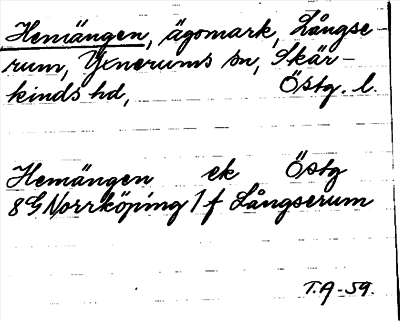 Hemängen, ägomark, Långse-
rum, Yxnerums sn, Skär-
kinds hd, Östg. l.
Hemängen ek Östg
8G Norrköping 1 f Långserum
T.A-59.